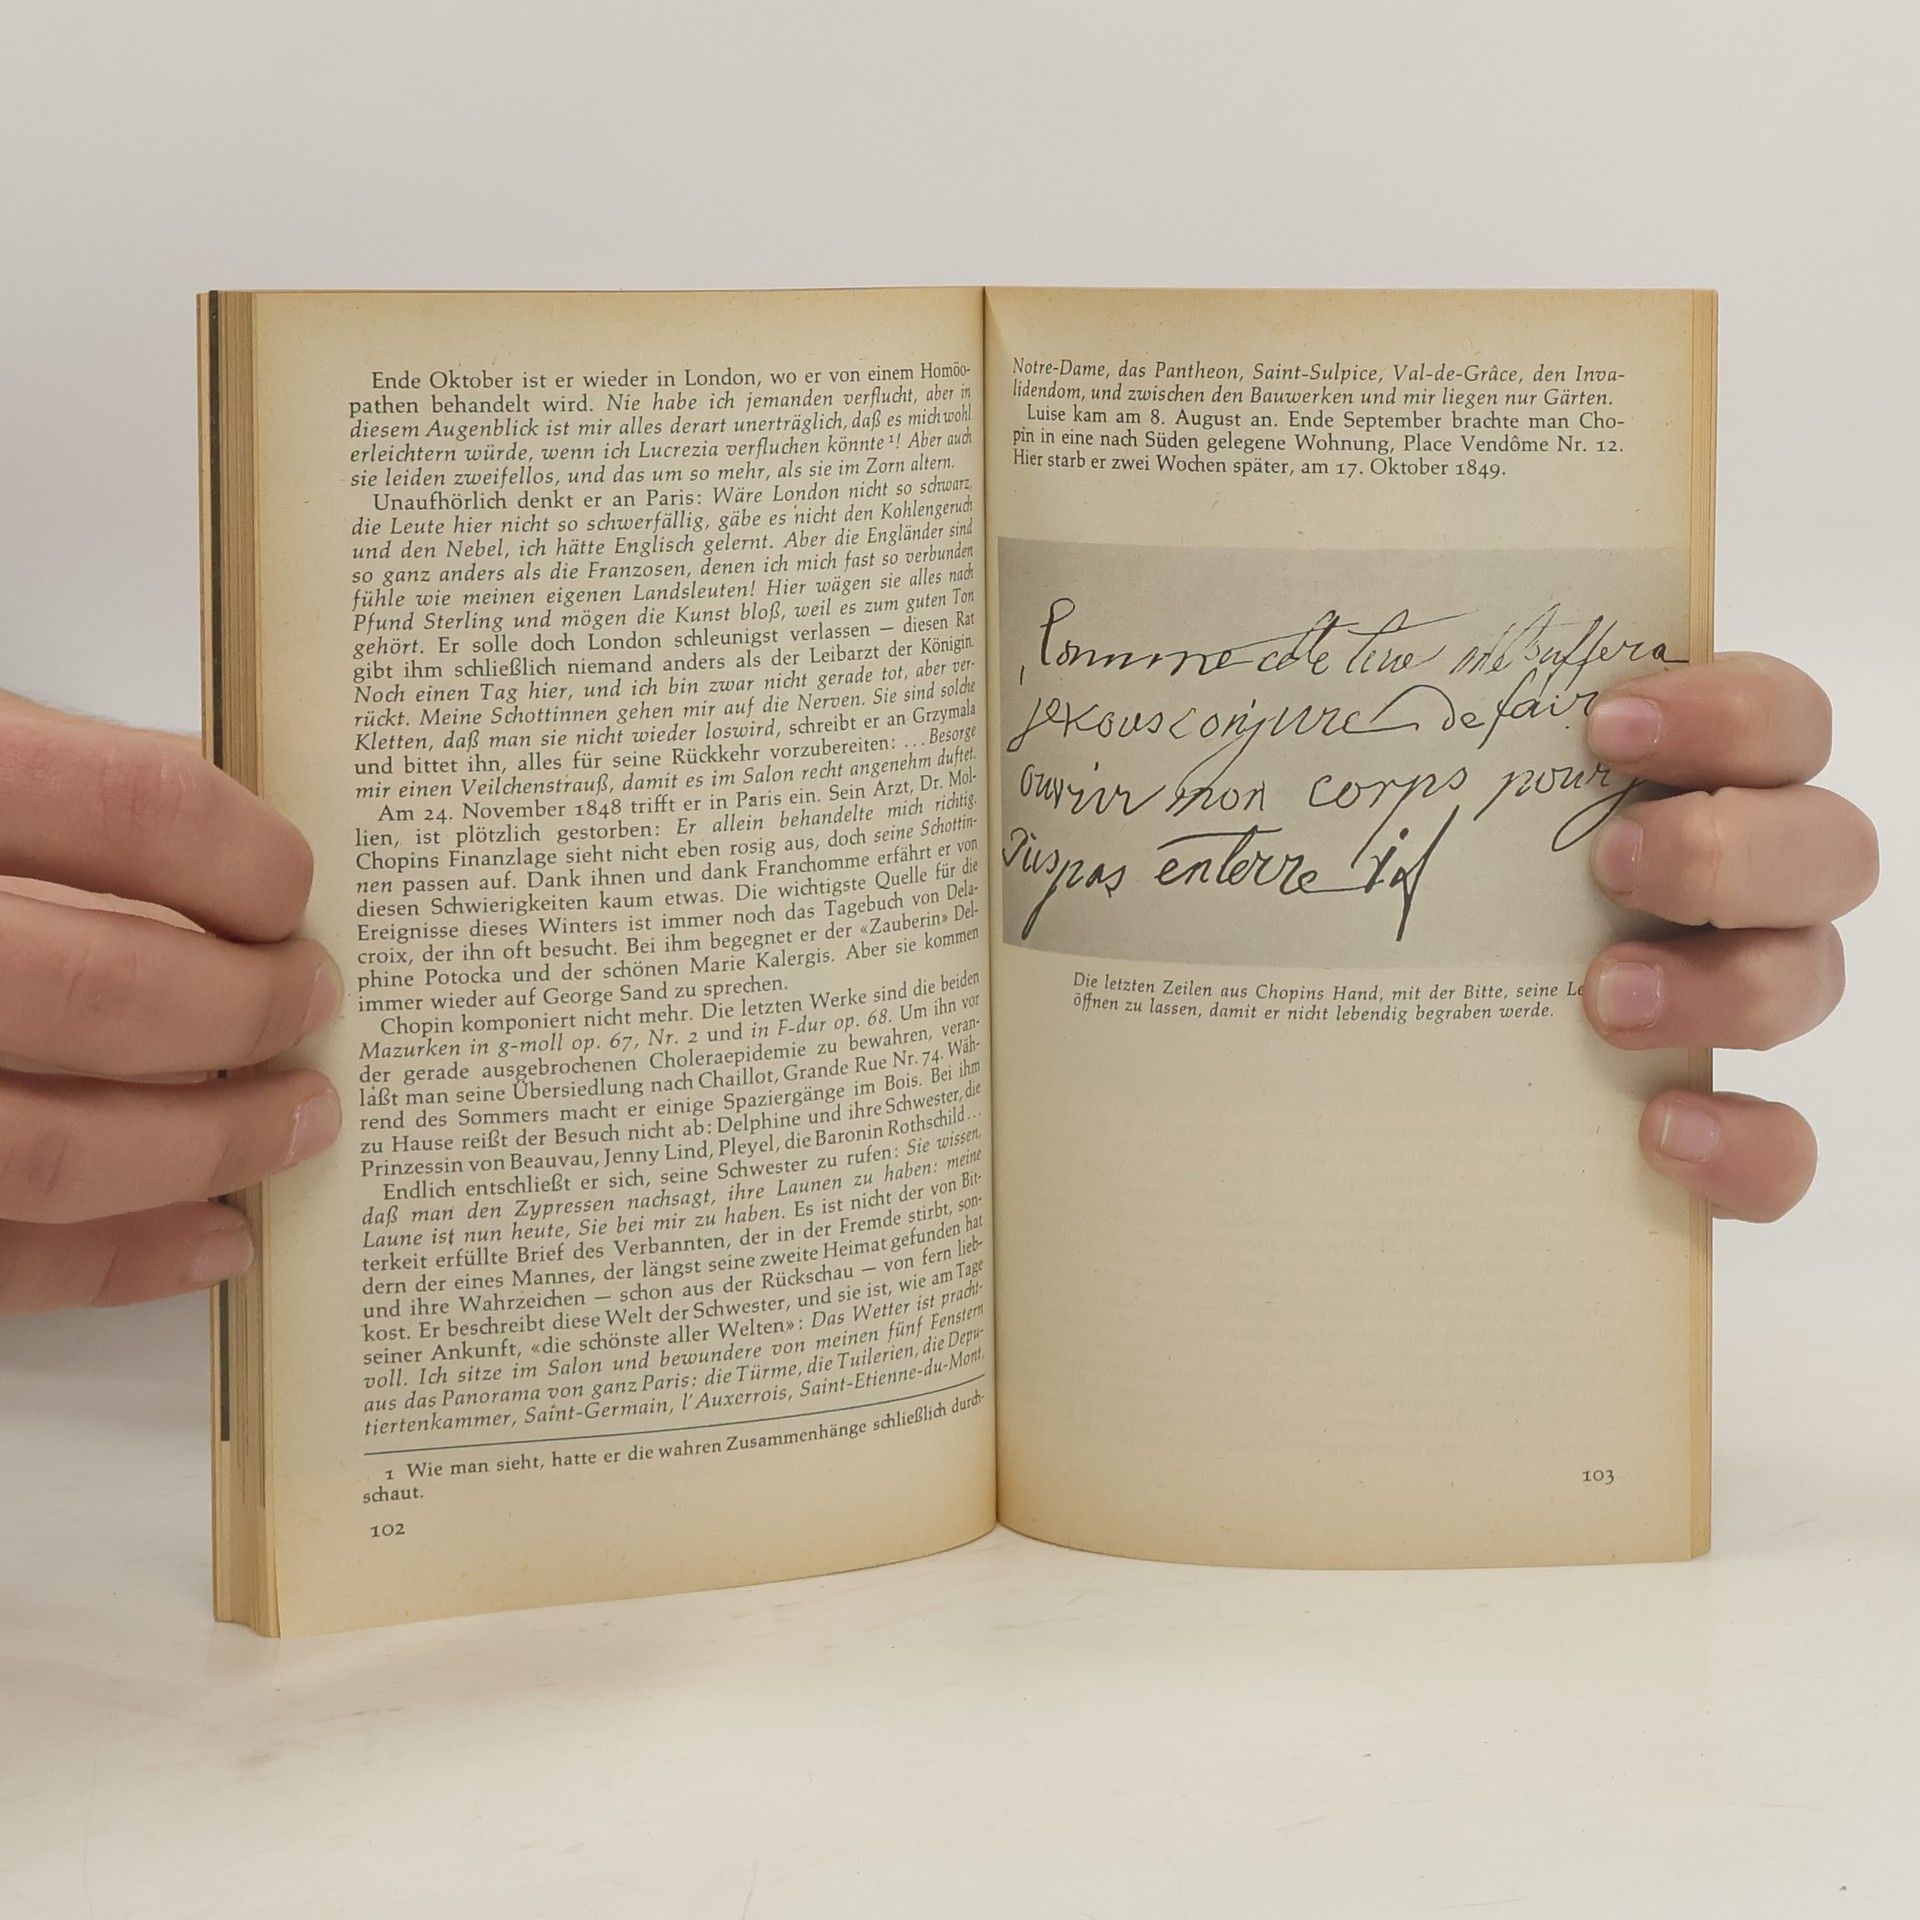 Ende Oktober ist er wieder in London, wo er von einem Homöo-
pathen behandelt wird. Nie habe ich jemanden verflucht, aber in
diesem Augenblick ist mir alles derart unerträglich, daß es mich wohl
erleichtern würde, wenn ich Lucrezia verfluchen könnte¹! Aber auch
sie leiden zweifellos, und das um so mehr, als sie im Zorn altern.
Unaufhörlich denkt er an Paris: Wäre London nicht so schwarz,
die Leute hier nicht so schwerfällig, gäbe es nicht den Kohlengeruch
und den Nebel, ich hätte Englisch gelernt. Aber die Engländer sind
so ganz anders als die Franzosen, denen ich mich fast so verbunden
fühle wie meinen eigenen Landsleuten! Hier wägen sie alles nach
Pfund Sterling und mögen die Kunst bloß, weil es zum guten Ton
gehört. Er solle doch London schleunigst verlassen — diesen Rat
gibt ihm schließlich niemand anders als der Leibarzt der Königin.
Noch einen Tag hier, und ich bin zwar nicht gerade tot, aber ver-
rückt. Meine Schottinnen gehen mir auf die Nerven. Sie sind solche
Kletten, daß man sie nicht wieder loswird, schreibt er an Grzymala
und bittet ihn, alles für seine Rückkehr vorzubereiten: ...Besorge
mir einen Veilchenstrauß, damit es im Salon recht angenehm duftet.
Am 24. November 1848 trifft er in Paris ein. Sein Arzt, Dr. Mol-
lien, ist plötzlich gestorben: Er allein behandelte mich richtig.
Chopins Finanzlage sieht nicht eben rosig aus, doch seine Schottin-
nen passen auf. Dank ihnen und dank Franchomme erfährt er von
diesen Schwierigkeiten kaum etwas. Die wichtigste Quelle für die
Ereignisse dieses Winters ist immer noch das Tagebuch von Dela-
croix, der ihn oft besucht. Bei ihm begegnet er der «Zauberin» Del-
phine Potocka und der schönen Marie Kalergis. Aber sie kommen
immer wieder auf George Sand zu sprechen.
Chopin komponiert nicht mehr. Die letzten Werke sind die beiden
Mazurken in g-moll op. 67, Nr. 2 und in F-dur op. 68. Um ihn vor
der gerade ausgebrochenen Choleraepidemie zu bewahren, veran-
laßt man seine Übersiedlung nach Chaillot, Grande Rue Nr. 74. Wäh-
rend des Sommers macht er einige Spaziergänge im Bois. Bei ihm
zu Hause reißt der Besuch nicht ab: Delphine und ihre Schwester, die
Prinzessin von Beauvau, Jenny Lind, Pleyel, die Baronin Rothschild...
Endlich entschließt er sich, seine Schwester zu rufen: Sie wissen,
daß man den Zypressen nachsagt, ihre Launen zu haben: meine
Laune ist nun heute, Sie bei mir zu haben. Es ist nicht der von Bit-
terkeit erfüllte Brief des Verbannten, der in der Fremde stirbt, son-
dern der eines Mannes, der längst seine zweite Heimat gefunden hat
und ihre Wahrzeichen — schon aus der Rückschau — von fern lieb-
kost. Er beschreibt diese Welt der Schwester, und sie ist, wie am Tage
seiner Ankunft, «die schönste aller Welten»: Das Wetter ist pracht-
voll. Ich sitze im Salon und bewundere von meinen fünf Fenstern
aus das Panorama von ganz Paris: die Türme, die Tuilerien, die Depu-
tiertenkammer, Saint-Germain, l'Auxerrois, Saint-Etienne-du-Mont,
1 Wie man sieht, hatte er die wahren Zusammenhänge schließlich durch-
schaut.
102
Notre-Dame, das Pantheon, Saint-Sulpice, Val-de-Grâce, den Inva-
lidendom, und zwischen den Bauwerken und mir liegen nur Gärten.
Luise kam am 8. August an. Ende September brachte man Cho-
pin in eine nach Süden gelegene Wohnung, Place Vendôme Nr. 12.
Hier starb er zwei Wochen später, am 17. Oktober 1849.
Comme cete suffera
je vous conjure de fair
ouvrir mon corps pour
pas enterre vif
Die letzten Zeilen aus Chopins Hand, mit der Bitte, seine
öffnen zu lassen, damit er nicht lebendig begraben werde.
103